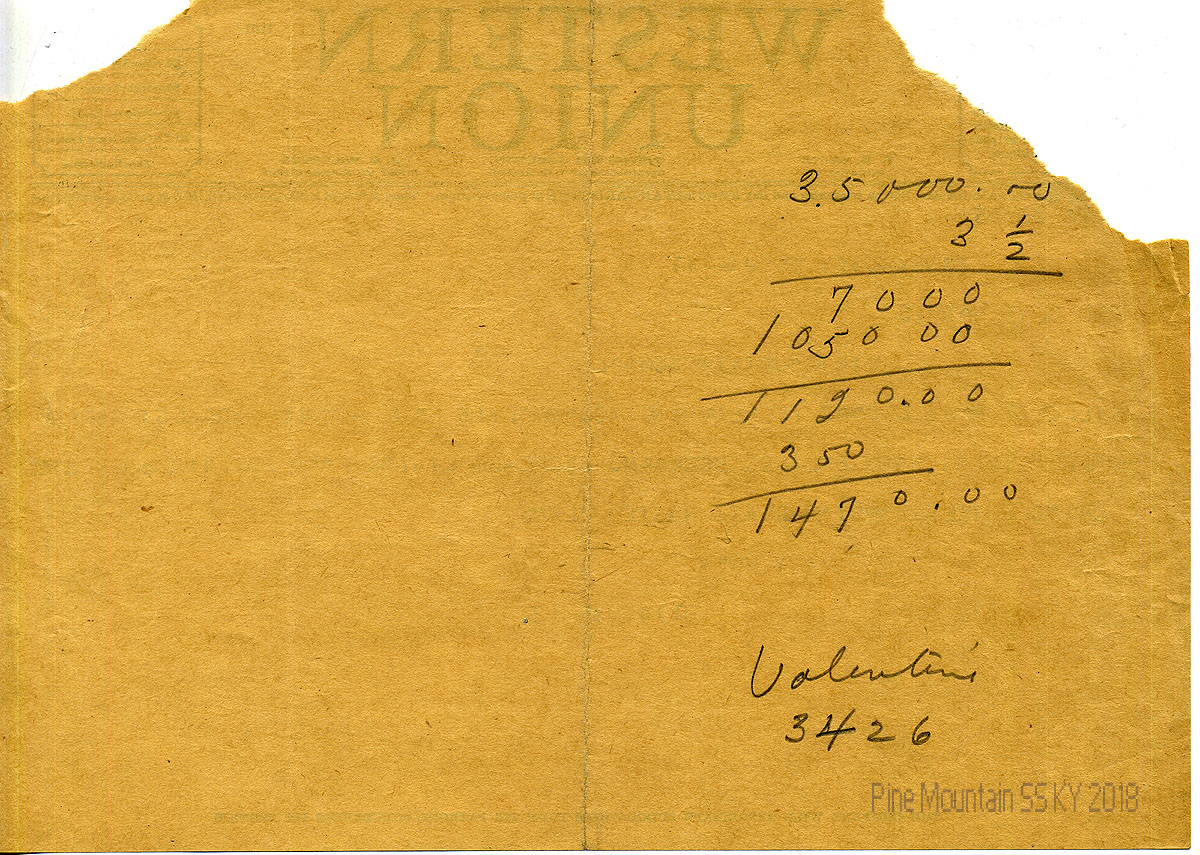 WESTERN
UNION
35,000.00
3 1/2
7000
105000
1120.00
350
1470.00
Valentine
3426
Pine Mountain SS KY 2018